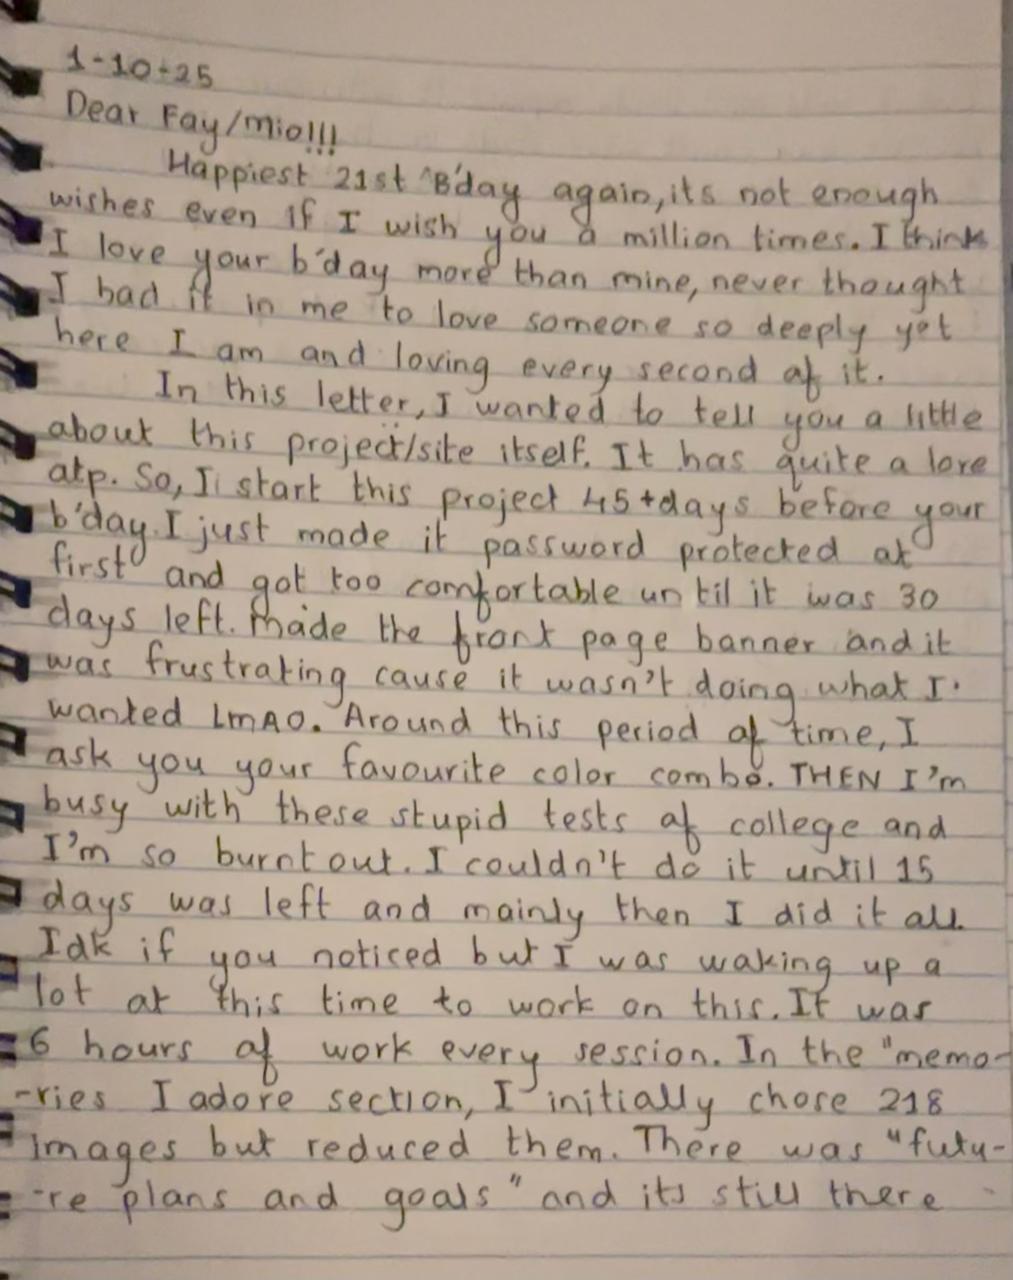 1-10-25
Dear Fay/Mio!!!
Happiest 21st B'day again, its not enough
wishes even if I wish you a million times. I think
I love your b'day more than mine, never thought
I had it in me to love someone so deeply yet
here I am and loving every second of it.
In this letter, I wanted to tell you a little
about this project/site itself. It has quite a lore
atp. So, I start this project 45+days before your
b'day. I just made it password protected at
first and got too comfortable until it was 30
days left. Made the front page banner and it
was frustrating cause it wasn't doing what I
wanted LMAO. Around this period of time, I
ask you your favourite color combo. THEN I'm
busy with these stupid tests of college and
I'm so burnt out. I couldn't do it until 15
days was left and mainly then I did it all.
Idk if you noticed but I was waking up a
lot at this time to work on this. It was
6 hours of work every session. In the "memo-
-ries I adore section, I initially chose 218
images but reduced them. There was "futu-
-re plans and goals" and its still there